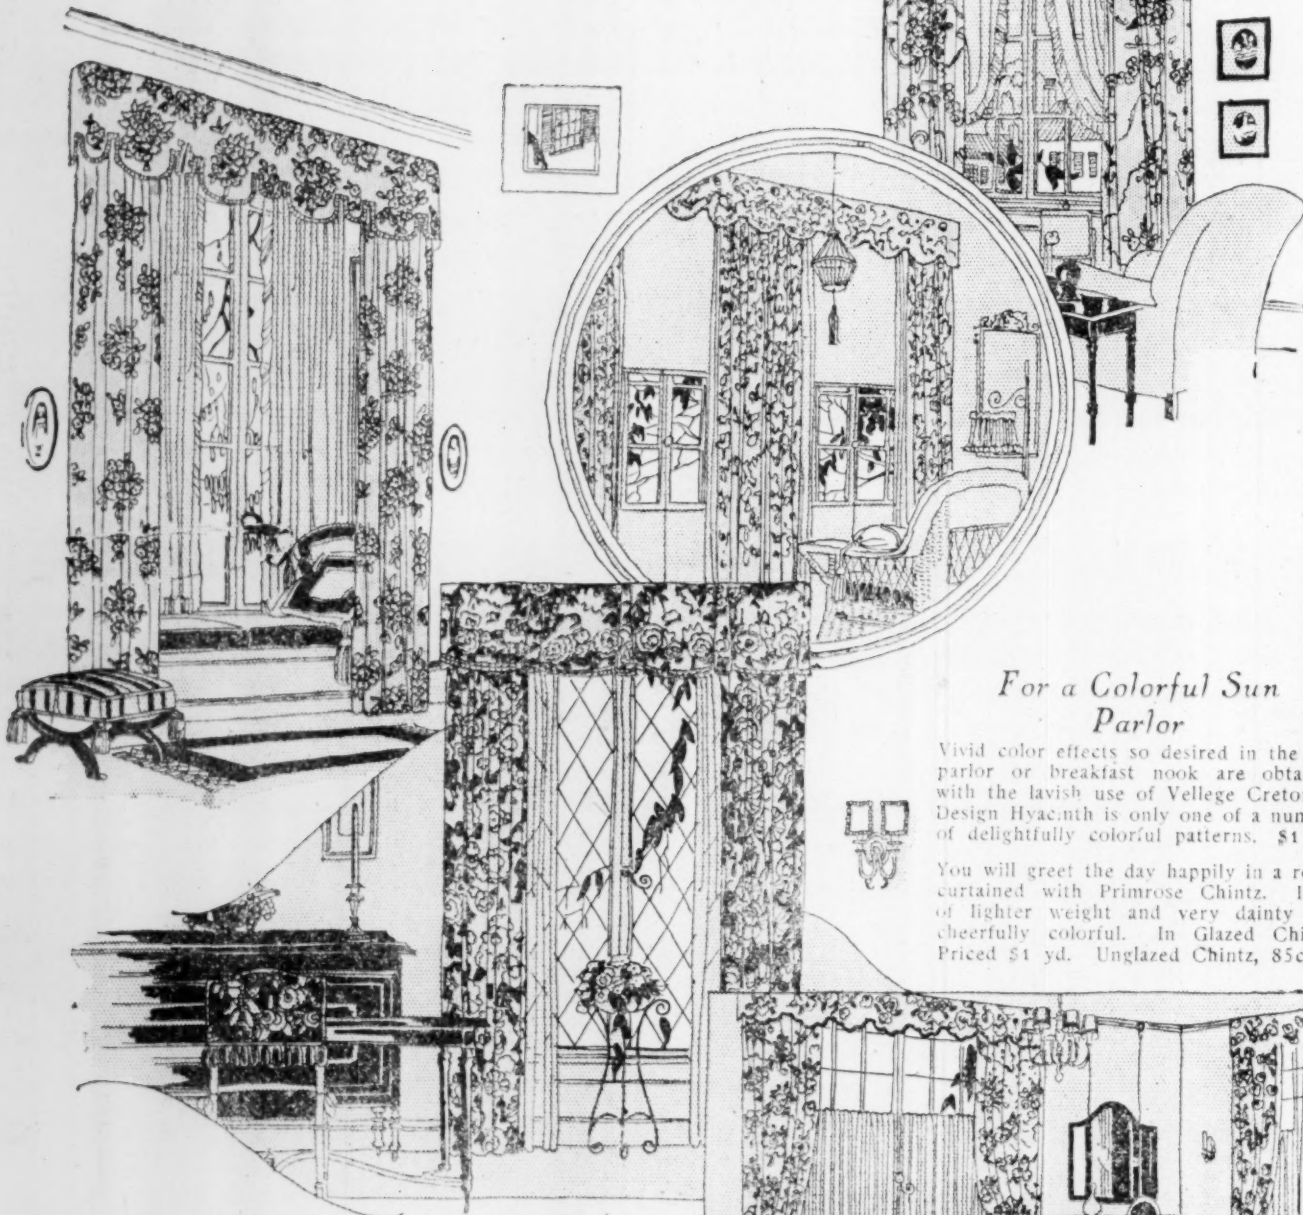 For a Colorful Sun
Parlor
Vivid color effects so desired in the
parlor or breakfast nook are obta
with the lavish use of Vellege Creto
Design Hyacinth is only one of a num
of delightfully colorful patterns. $1
You will greet the day happily in a r
curtained with Primrose Chintz. I
of lighter weight and very dainty
cheerfully colorful. In Glazed Chi
Priced $1 yd. Unglazed Chintz, 85c